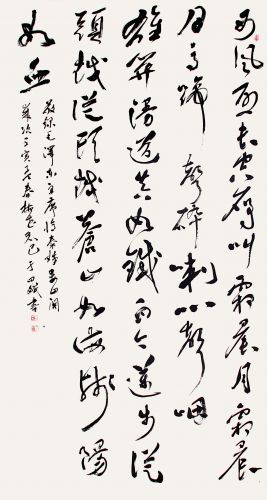 西風烈長空雁叫霜晨月霜晨
月馬蹄聲碎喇叭聲咽
雄關漫道真如鐵而今邁步從
頭越從頭越蒼山如海殘陽
如血
敬錄毛澤東主席憶秦娥婁山關
歲次寅春書